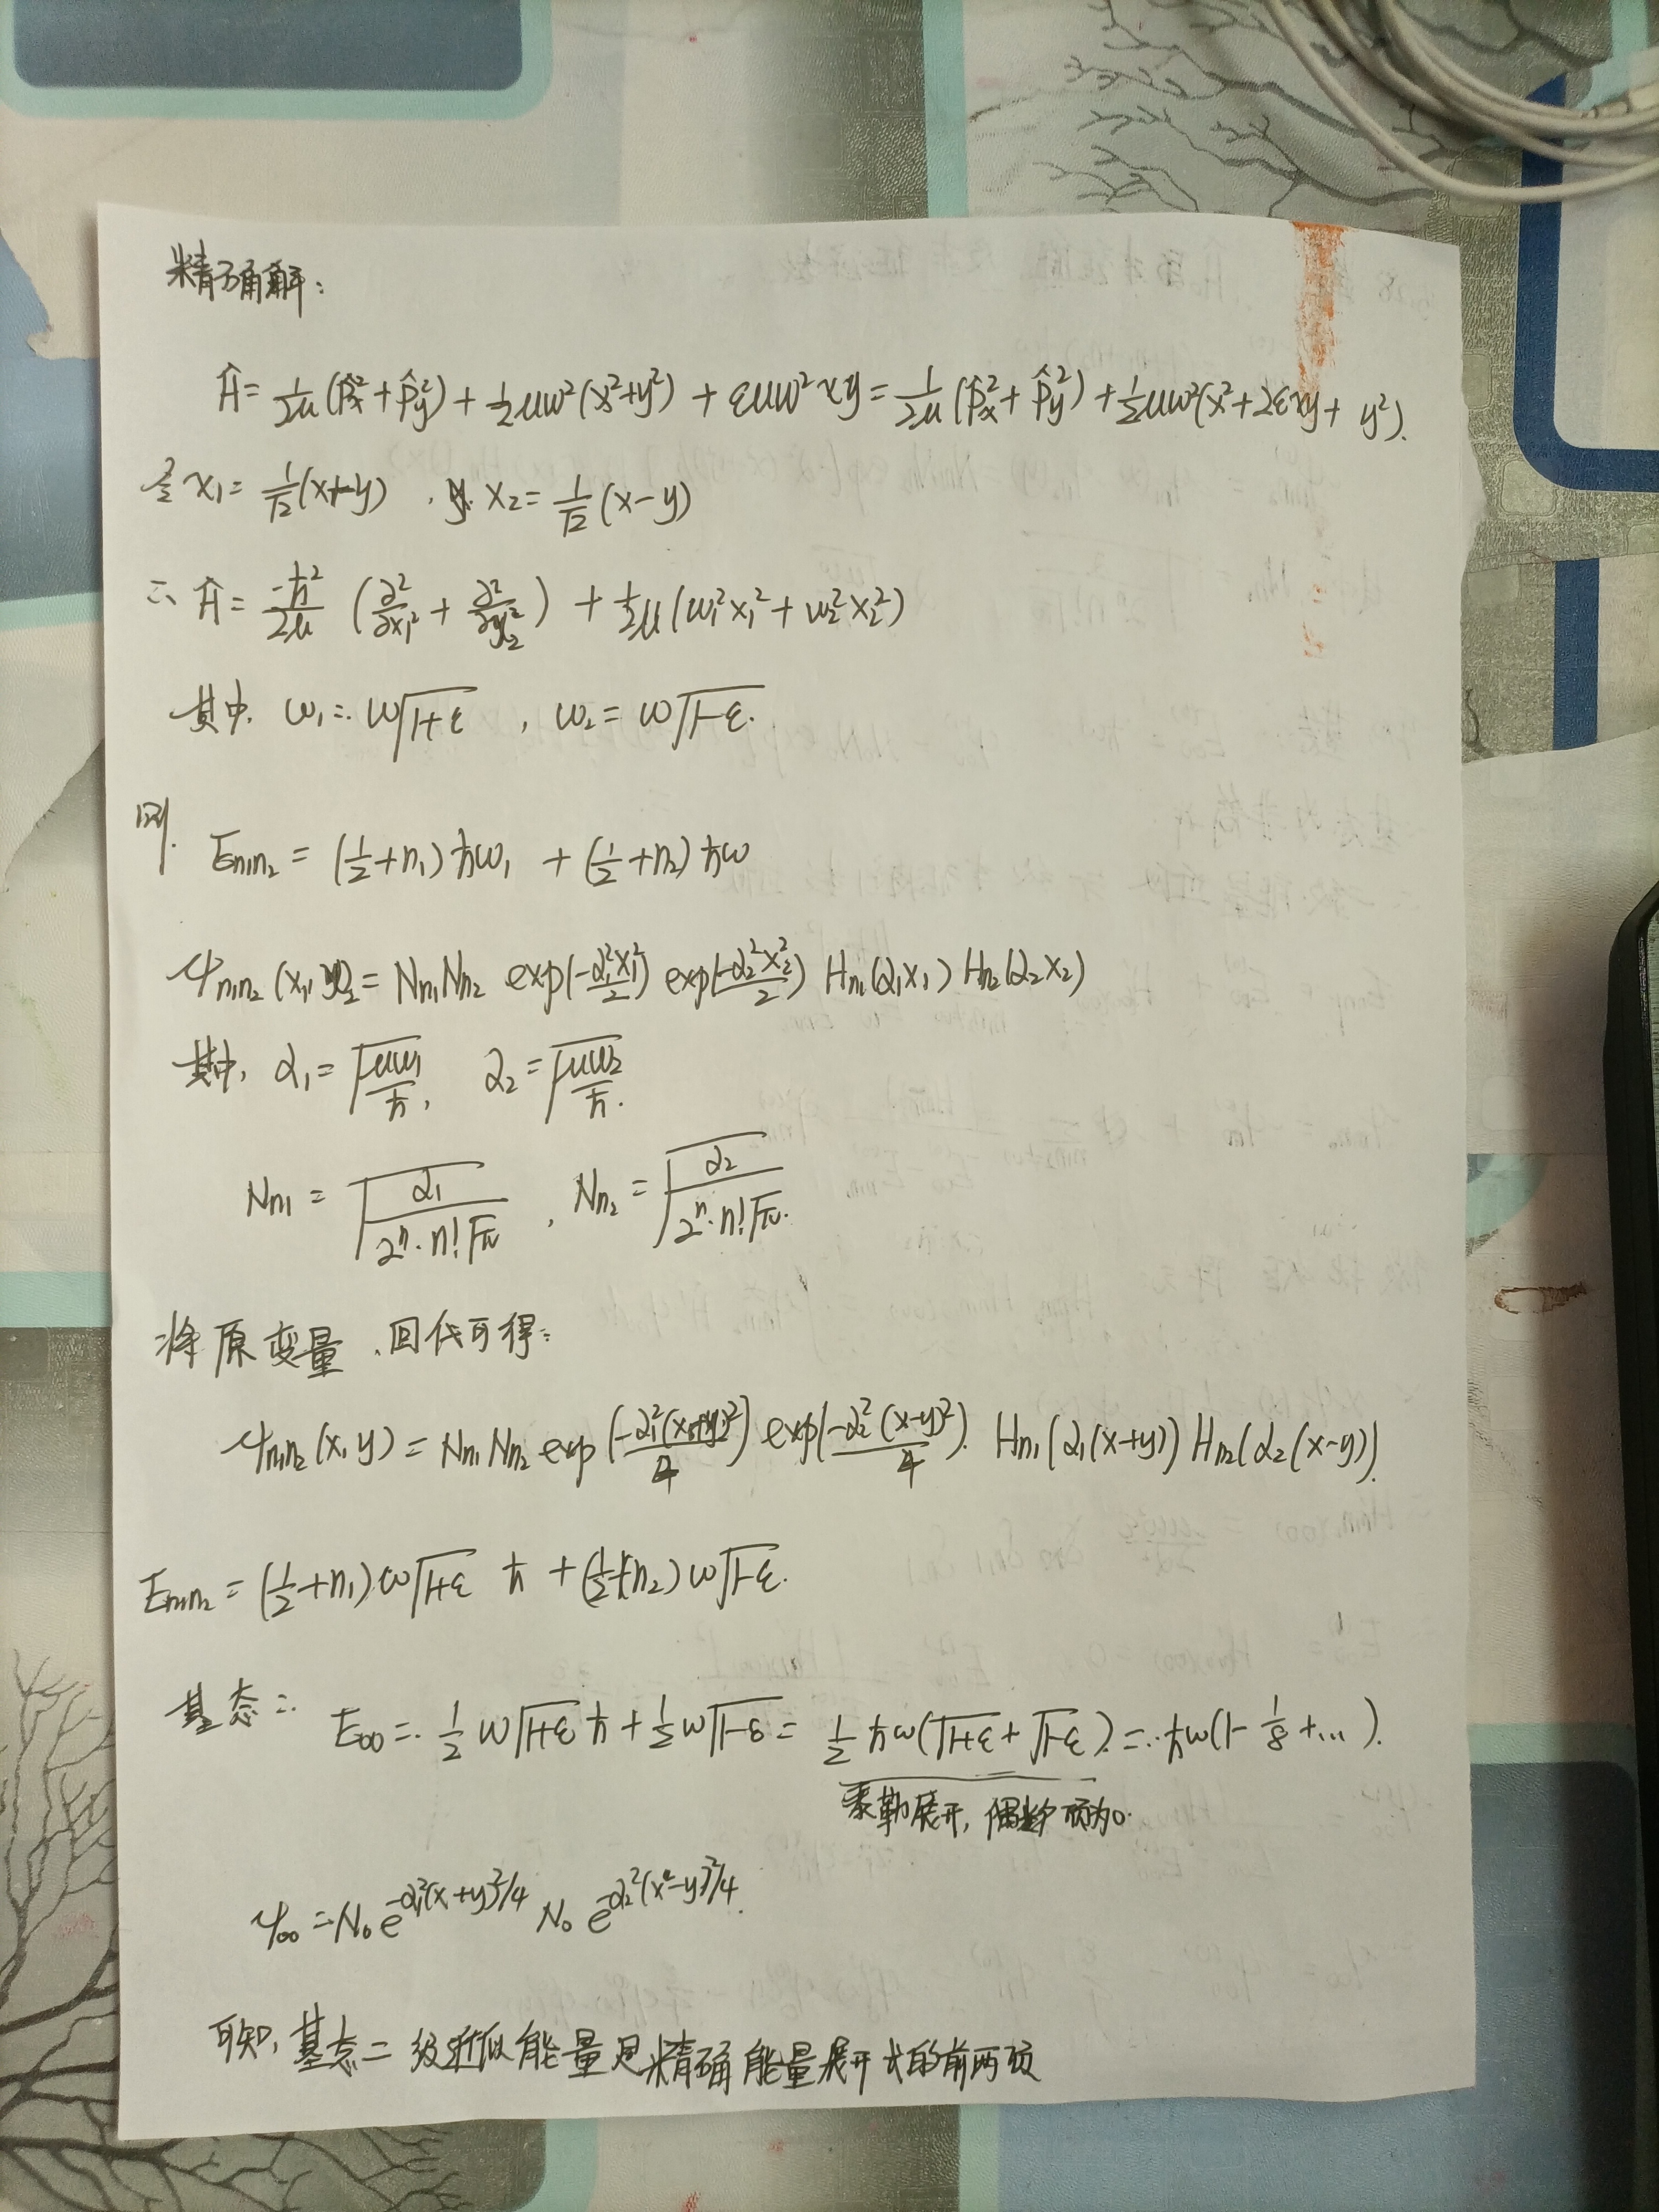 精确解:
Ĥ = 1/2μ (p̂x² + p̂y²) + 1/2 μω²(x²+y²) + εμω²xy = 1/2μ (p̂x² + p̂y²) + 1/2 μω²(x² + 2εxy + y²).
令 x₁ = 1/√2 (x+y) , x₂ = 1/√2 (x-y)
∴ Ĥ = -ħ²/2μ (∂²/∂x₁² + ∂²/∂y₂²) + 1/2 μ(ω₁²x₁² + ω₂²x₂²)
其中. ω₁ = ω√(1+ε) , ω₂ = ω√(1-ε).
则. En₁n₂ = (1/2+n₁)ħω₁ + (1/2+n₂)ħω
ψn₁n₂(x₁, x₂) = Nn₁Nn₂ exp(-α₁²x₁²/2) exp(-α₂²x₂²/2) Hn₁(α₁x₁) Hn₂(α₂x₂)
其中, α₁ = √(μω₁/ħ), α₂ = √(μω₂/ħ).
Nn₁ = √(α₁/(2ⁿ·n!√π)) , Nn₂ = √(α₂/(2ⁿ·n!√π)).
将原变量,回代可得:
ψn₁n₂(x,y) = Nn₁Nn₂ exp(-α₁²(x+y)²/4) exp(-α₂²(x-y)²/4). Hn₁(α₁(x+y)) Hn₂(α₂(x-y)).
En₁n₂ = (1/2+n₁)ω√(1+ε) ħ + (1/2+n₂)ω√(1-ε).
基态: E₀₀ = 1/2 ω√(1+ε) ħ + 1/2 ω√(1-ε) = 1/2 ħω(√(1+ε) + √(1-ε)) = ħω(1 - 1/8 + ...).
泰勒展开, 偶数项为0.
ψ₀₀ = N₀ e^(-α₁²(x+y)²/4) N₀ e^(-α₂²(x-y)²/4).
可知, 基态二级近似能量是精确能量展开式的前两项